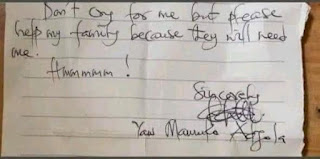 Don't cry for me but please
help my family because they will need
me.
Hmmmmm !
Sincerely
Yaw